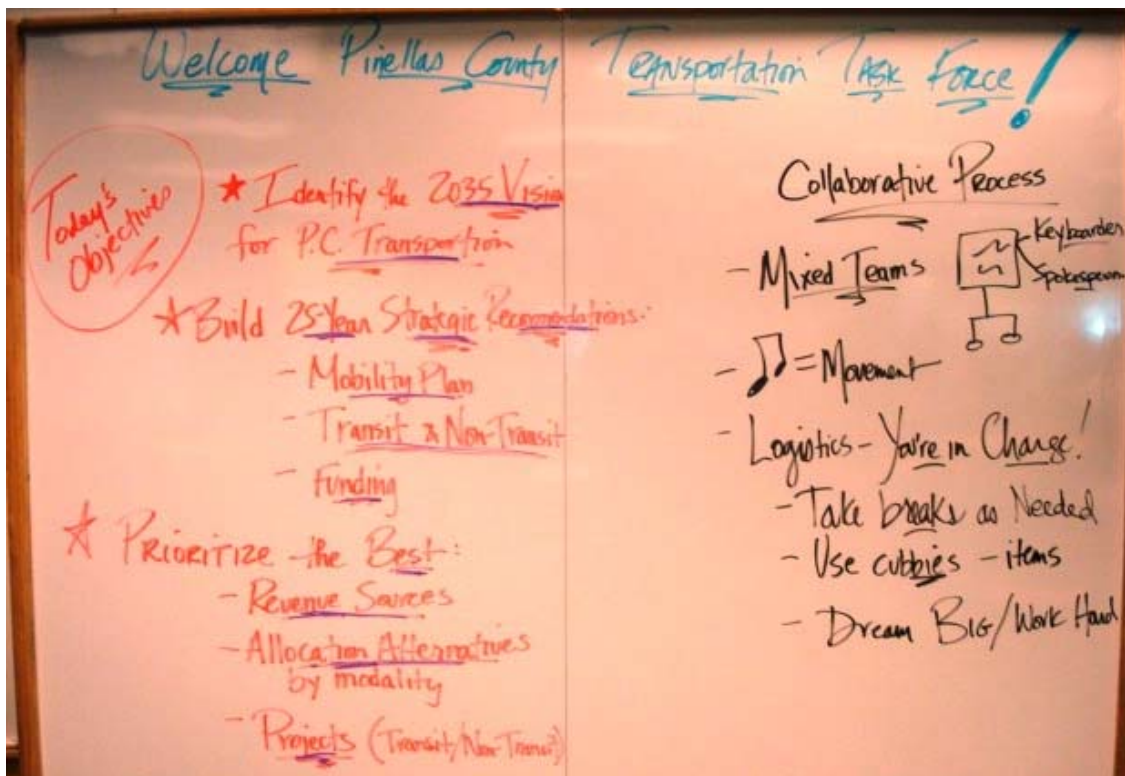 Welcome Pinellas County Transportation Task Force!
Today's
Objectives
★ Identify the 2035 Vision
for P.C. Transportion
★ Build 25-Year Strategic Recomodations:
- Mobility Plan
- Transit & Non-Transit
- Funding
★ Prioritize the Best:
- Revenue Sources
- Allocation Alternatives
by modality
- Projects (Transit/Non-Transit)
Collaborative Process
- Mixed Teams
Keyboarder
Spokesperson
- ♫ = Movement
- Logistics - You're in Charge!
- Take breaks as Needed
- Use cubbies - items
- Dream Big/Work Hard